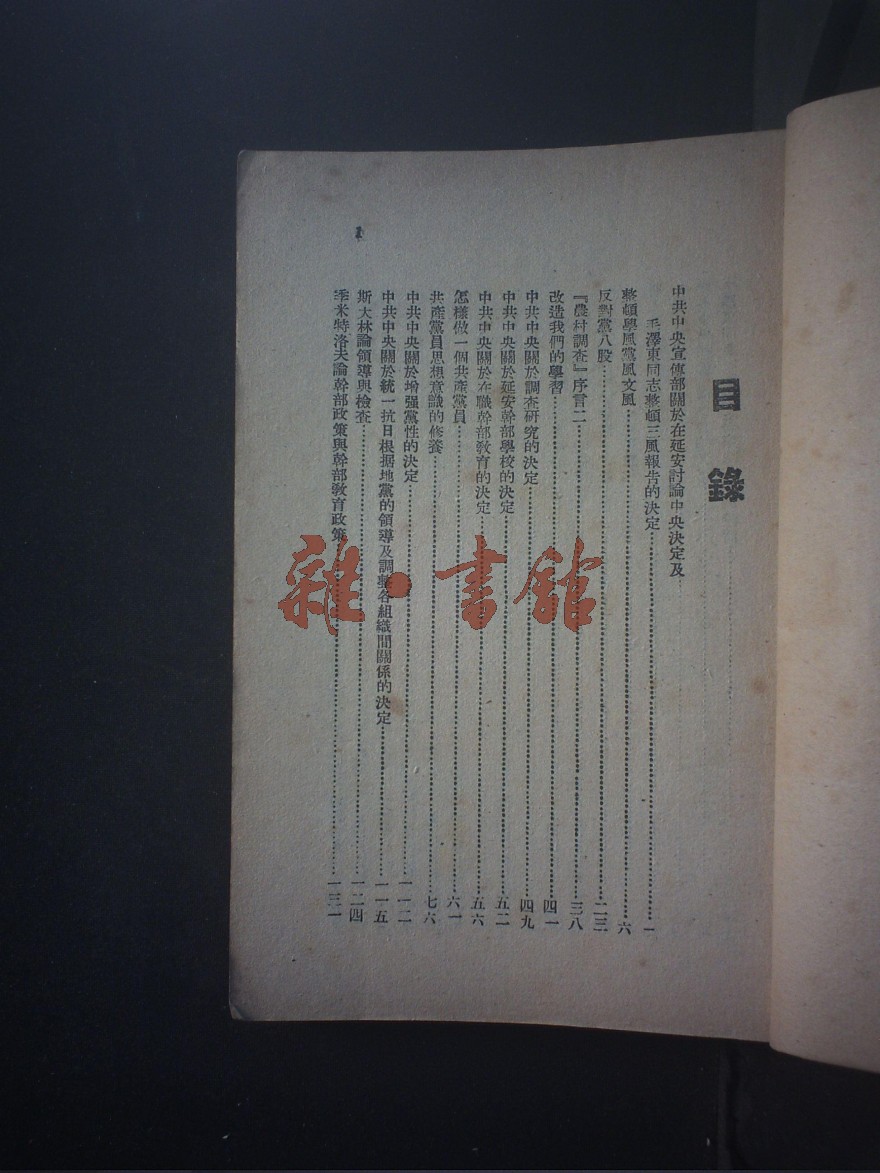 目錄
中共中央宣傳部關於在延安討論中央決定及
毛澤東同志整頓三風報告的決定……一
整頓學風黨風文風……六
反對黨八股……二三
『農村調查』序言二……三八
改造我們的學習……四一
中共中央關於調查研究的決定……四九
中共中央關於延安幹部學校的決定……五二
中共中央關於在職幹部教育的決定……五六
怎樣做一個共產黨員……六一
共產黨員思想意識的修養……七六
中共中央關於增强黨性的決定……一一二
中共中央關於統一抗日根据地黨的領導及調整各組織間關係的決定……一一五
斯大林論領導與檢查……一二四
季米特洛夫論幹部政策與幹部教育政策……一三一
雜·書館